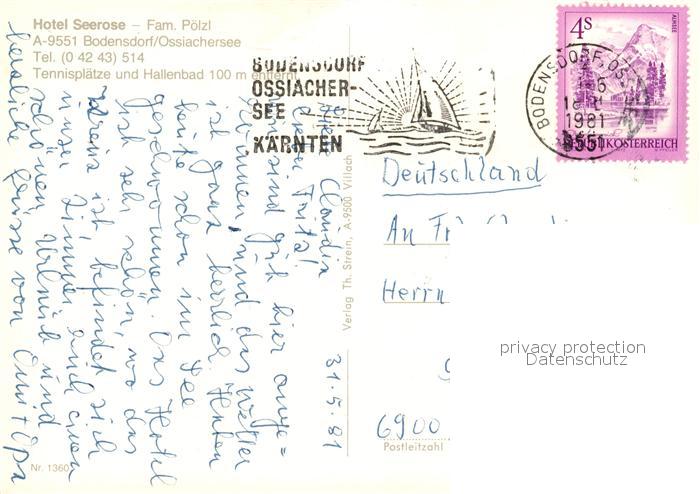 Hotel Seerose – Fam. Pölzl
A-9551 Bodensdorf/Ossiachersee
Tel. (0 42 43) 514
Tennisplätze und Hallenbad 100 m entfernt
BODENSDORF
OSSIACHER-
SEE
KÄRNTEN
BODENSDORF, OS
1981
9551
4S
ALMSEE
REPUBLIK ÖSTERREICH
31.5.81
Liebe Claudia
lieber Fritz!
wir sind gut hier ange=
kommen, und das Wetter
ist ganz herrlich. Haben
heute schon im See
geschwommen. Das Hotel
ist sehr schön, wo das
ist, befindet sich
unser Zimmer. Euch einen
schönen Urlaub und
herzliche Grüsse von Omi + Opa
Verlag Th. Strein, A-9500 Villach
Nr. 1360
Deutschland
An
Herrn
6900
Postleitzahl
privacy protection
Datenschutz